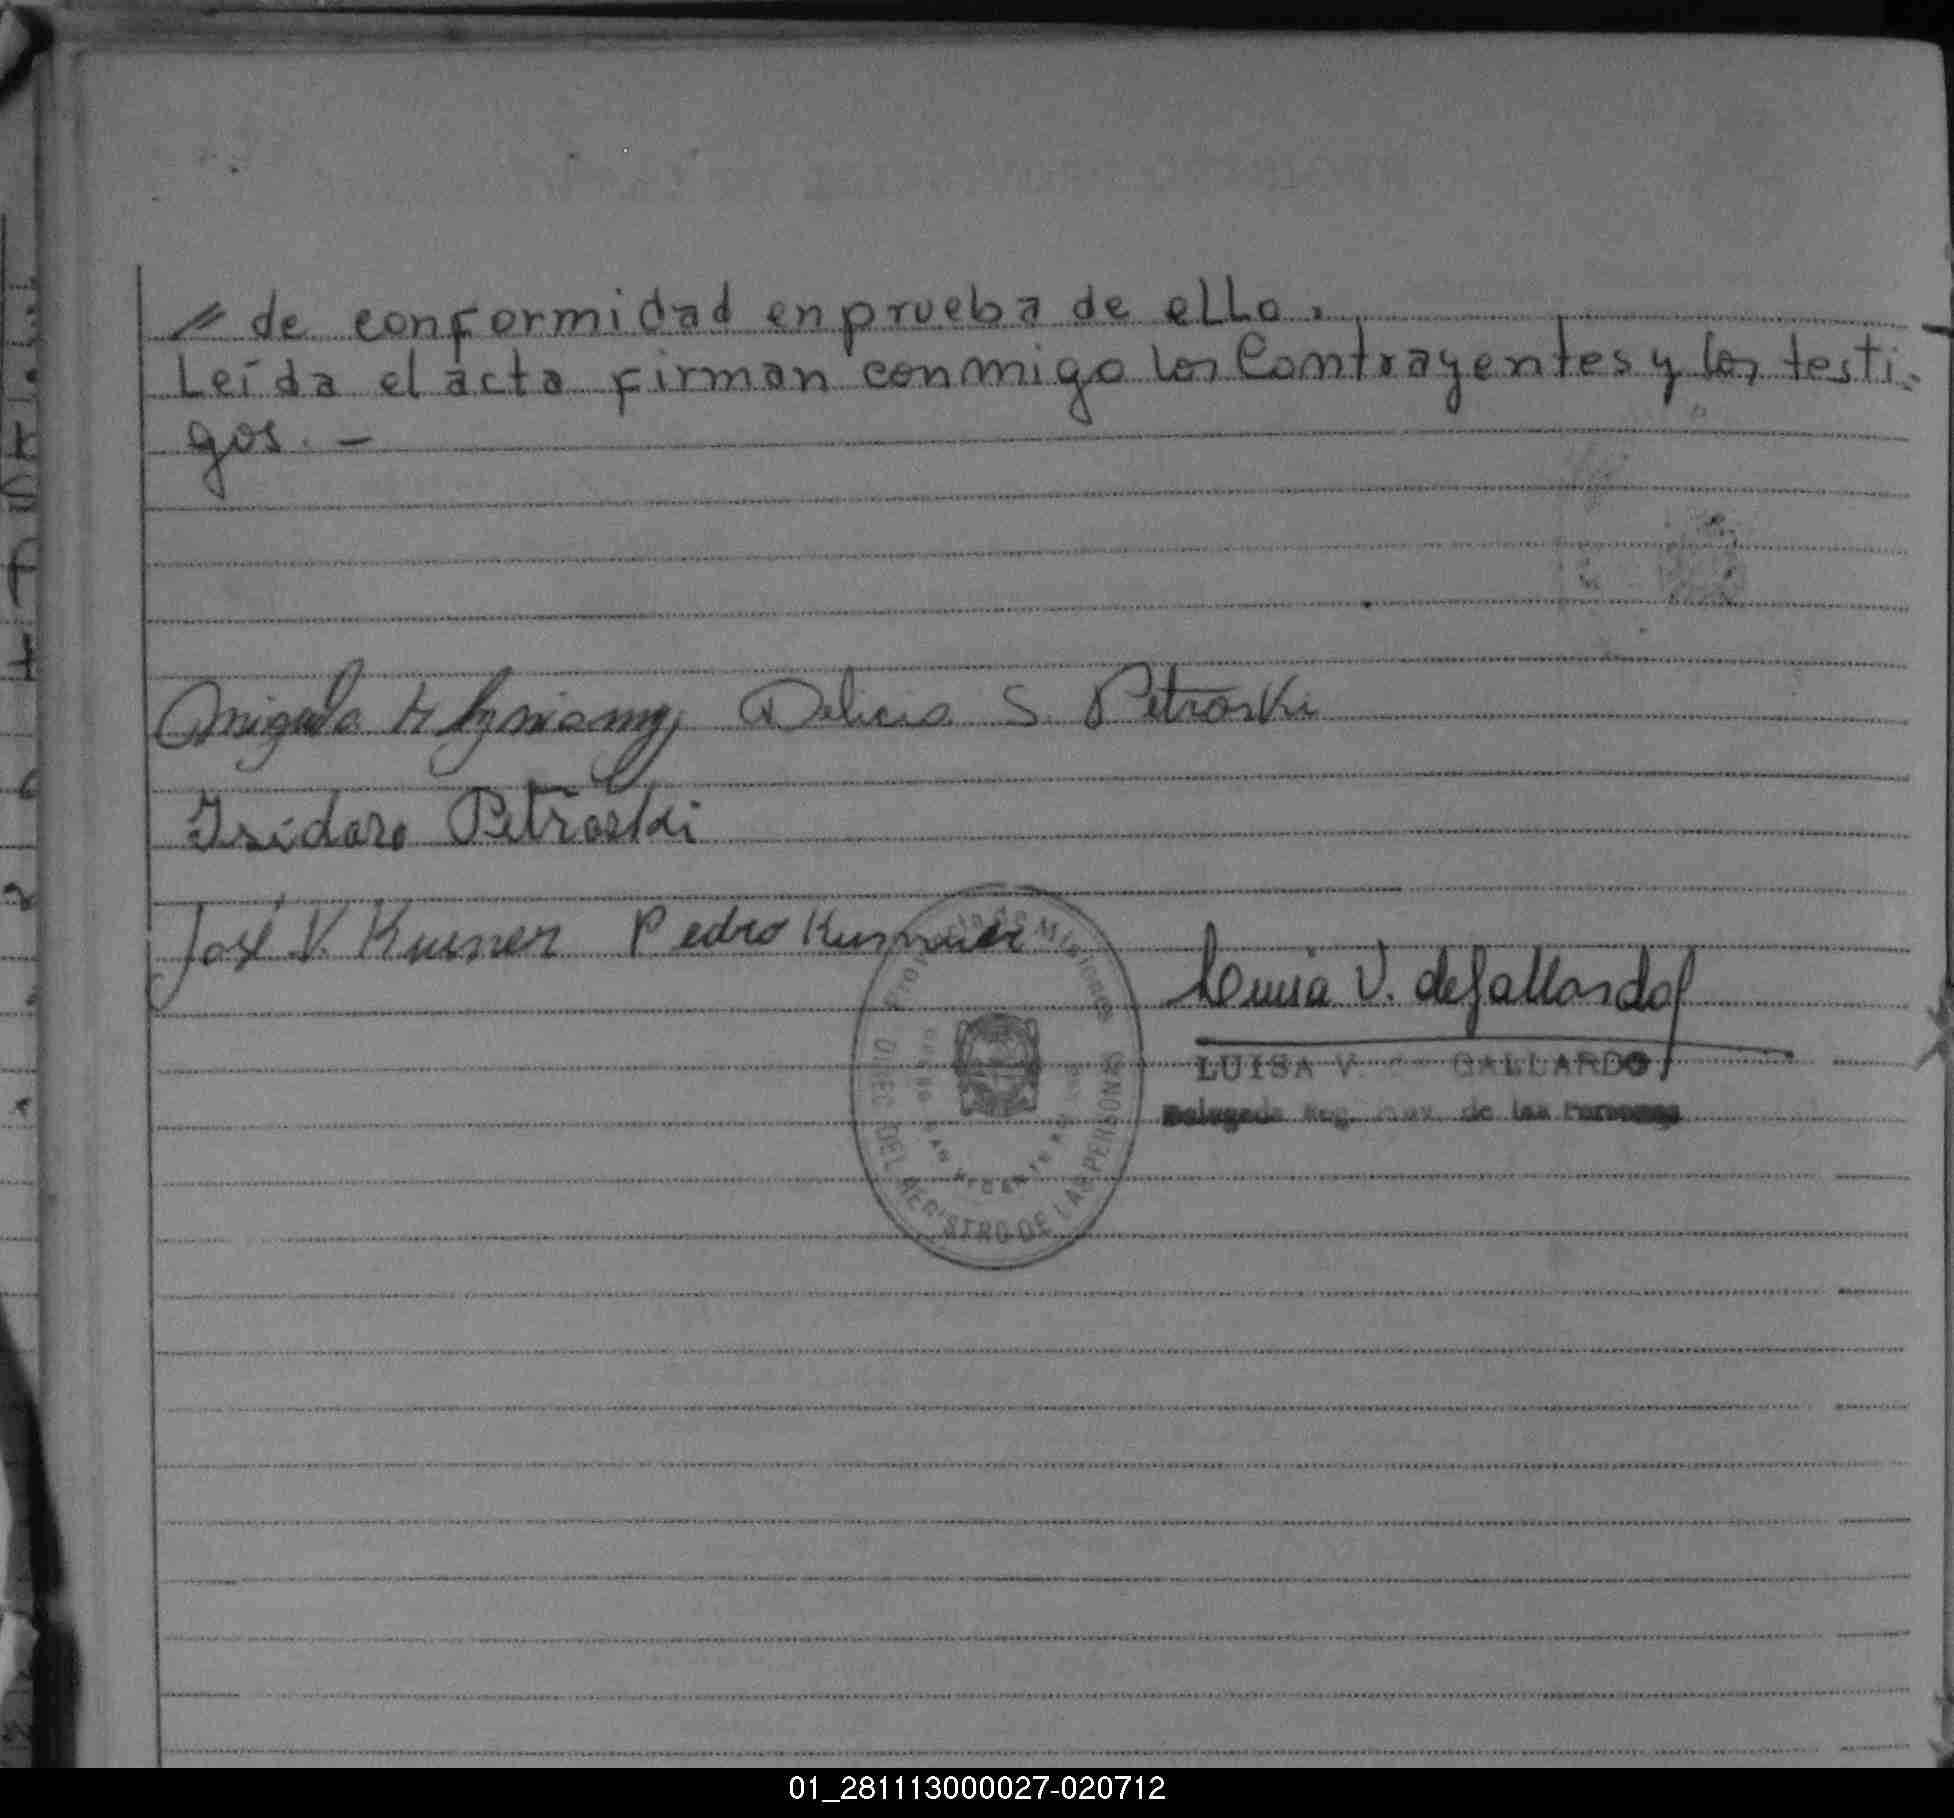 // de conformidad en prueba de ello.
Leída el acta firman conmigo los Contrayentes y los testi-
gos. -
Delicia S. Petroski
Isidoro Petroski
José V. Kusner Pedro
Provincia de Misiones
DIREC DEL REGISTRO DE LAS PERSONAS
Luisa V. de Gallardo
LUISA V. de GALLARDO
Delegada Reg. Prov. de las Personas
01_281113000027-020712